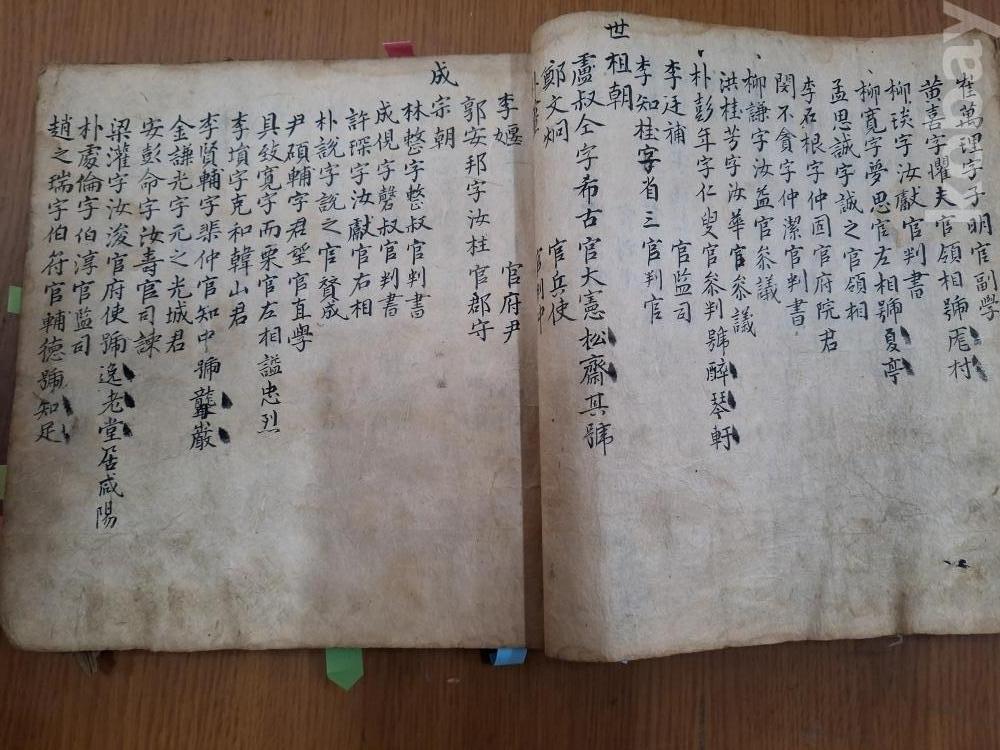 崔萬理字子明官副學
黃喜字懼夫官領相號厖村
柳琰字汝獻官判書
柳寬字夢思官左相號夏亭
孟思誠字誠之官領相
李石根字仲固官府院君
閔不貪字仲潔官判書
柳謙字汝益官叅議
洪桂芳字汝華官叅議
朴彭年字仁叟官叅判號醉琴軒
李廷補 官監司
李知桂字省三官判官
世祖朝
盧叔仝字希古官大憲松齋其號
鄭文炯 官兵使
李堰 官府尹
郭安邦字汝柱官郡守
成宗朝
林整字整叔官判書
成俔字磬叔官判書
許琛字汝獻官右相
朴說字說之官贊成
尹碩輔字君望官直學
具致寬字而栗官左相謚忠烈
李塤字克和韓山君
李賢輔字棐仲官知中號聾巖
金謙光字元之光城君
安彭命字汝壽官司諫
梁灌字汝浚官府使號逸老堂居咸陽
朴處倫字伯淳官監司
趙之瑞字伯符官輔德號知足
kobay